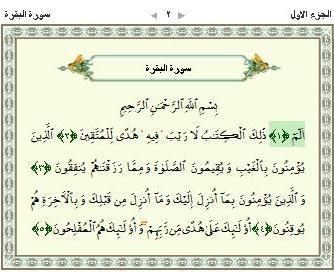 الجزء الاول ◄ ٢ ► سورة البقرة
سورة البقرة
بِسْمِ ٱللَّهِ ٱلرَّحْمَٰنِ ٱلرَّحِيمِ
الٓمٓ ﴿١﴾ ذَٰلِكَ ٱلْكِتَٰبُ لَا رَيْبَ ۛ فِيهِ ۛ هُدًى لِّلْمُتَّقِينَ ﴿٢﴾ ٱلَّذِينَ
يُؤْمِنُونَ بِٱلْغَيْبِ وَيُقِيمُونَ ٱلصَّلَوٰةَ وَمِمَّا رَزَقْنَٰهُمْ يُنفِقُونَ ﴿٣﴾
وَٱلَّذِينَ يُؤْمِنُونَ بِمَآ أُنزِلَ إِلَيْكَ وَمَآ أُنزِلَ مِن قَبْلِكَ وَبِٱلْءَاخِرَةِ هُمْ
يُوقِنُونَ ﴿٤﴾ أُو۟لَٰٓئِكَ عَلَىٰ هُدًى مِّن رَّبِّهِمْ ۖ وَأُو۟لَٰٓئِكَ هُمُ ٱلْمُفْلِحُونَ ﴿٥﴾